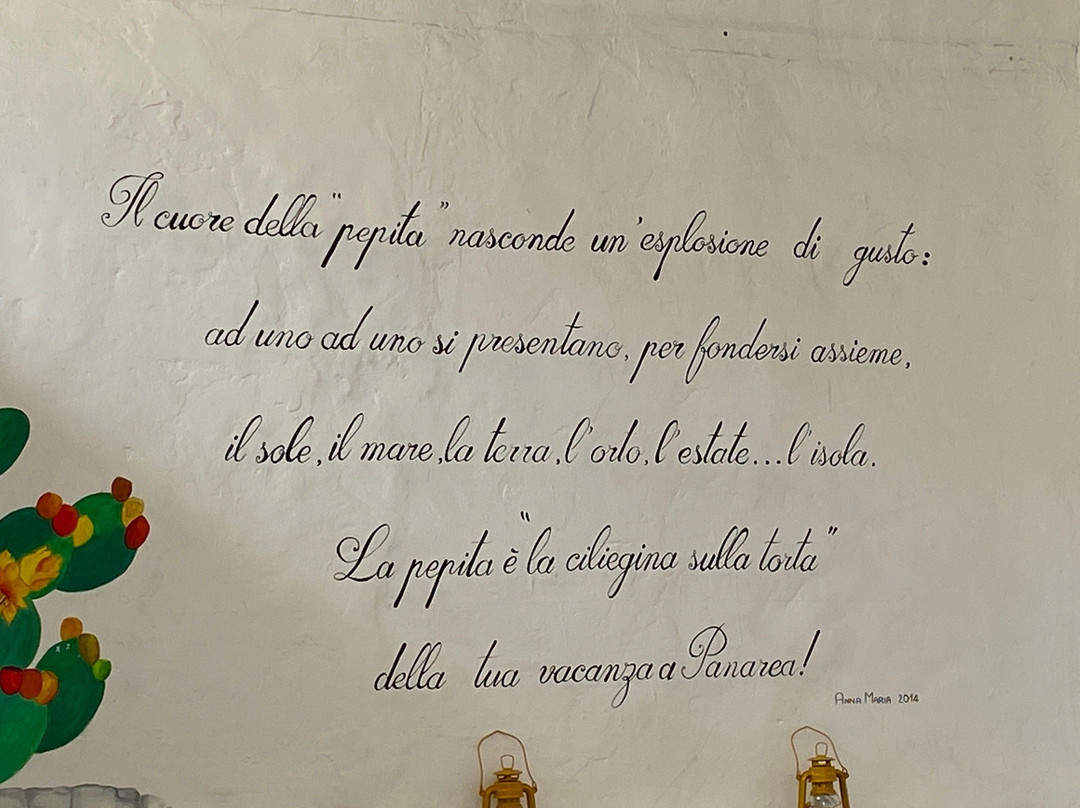 Il cuore della "pepita" nasconde un'esplosione di gusto:
ad uno ad uno si presentano, per fondersi assieme,
il sole, il mare, la terra, l'orto, l'estate...l'isola.
La pepita è "la ciliegina sulla torta"
della tua vacanza a Panarea!
Anna Maria 2014